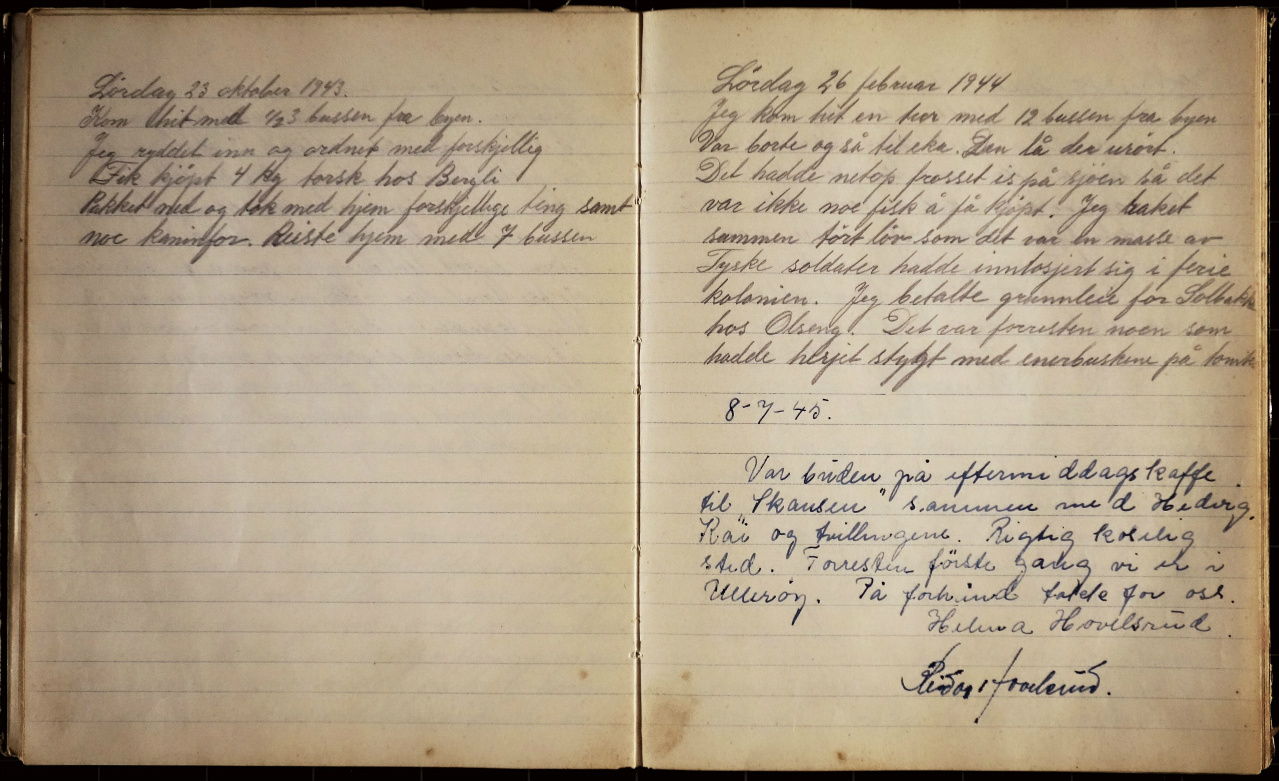 Lördag 23 oktober 1943.
Kom hit med 1/2 3 bussen fra byen.
Jeg ryddet inn og ordnet med forskjellig
Fik kjöpt 4 kg torsk hos Bergli
Pakket ned og tok med hjem forskjellige ting samt
noe kaninfor. Reiste hjem med 7 bussen
Lördag 26 februar 1944
Jeg kom hit en tur med 12 bussen fra byen
Var borte også til eka. Den lå der urört.
Det hadde netop frosset is på sjöen så det
var ikke noe fisk å få kjöpt. Jeg raket
sammen tört löv som det var en masse av
Tyske soldater hadde innlosjert sig i ferie
kolonien. Jeg betalte grunnleie for Solbakke
hos Olseng. Det var forresten noen som
hadde herjet stygt med enerbuskene på tomte
8-7-45.
Var buden på eftermiddagskaffe
til "Skansen" sammen med Hedvig.
Kai og tvillingene. Rigtig koselig
sted. Forresten förste gang vi er i
Ulleröy. På forhånd takk for oss.
Helma Hovelsrud.
Reidar Hovelsrud.